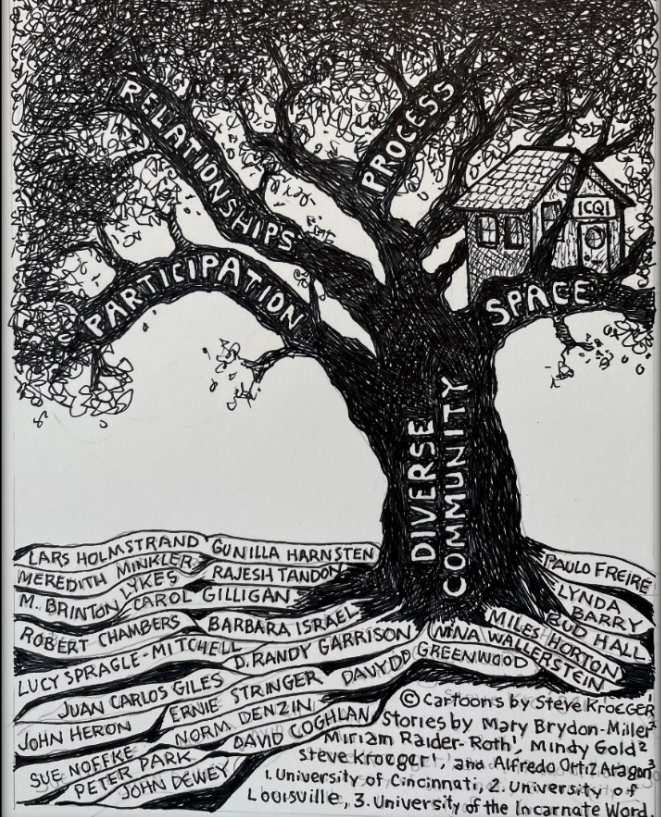 RELATIONSHIPS
PROCESS
ICQI
PARTICIPATION
SPACE
DIVERSE
COMMUNITY
LARS HOLMSTRAND
GUNILLA HARNSTEN
MEREDITH MINKLER
RAJESH TANDON
M. BRINTON LYKES
CAROL GILLIGAN
ROBERT CHAMBERS
BARBARA ISRAEL
LUCY SPRAGLE-MITCHELL
D. RANDY GARRISON
JUAN CARLOS GILES
ERNIE STRINGER
DAVYDD GREENWOOD
JOHN HERON
NORM DENZIN
DAVID COGHLAN
SUE NOFFKE
PETER PARK
JOHN DEWEY
PAULO FREIRE
LYNDA
BARRY
BUD HALL
MILES HORTON
NINA WALLERSTEIN
© Cartoons by Steve Kroeger¹
Stories by Mary Brydon-Miller²
Miriam Raider-Roth¹, Mindy Gold²
Steve Kroeger¹, and Alfredo Ortiz Aragon³
1. University of Cincinnati, 2. University of
Louisville, 3. University of the Incarnate Word